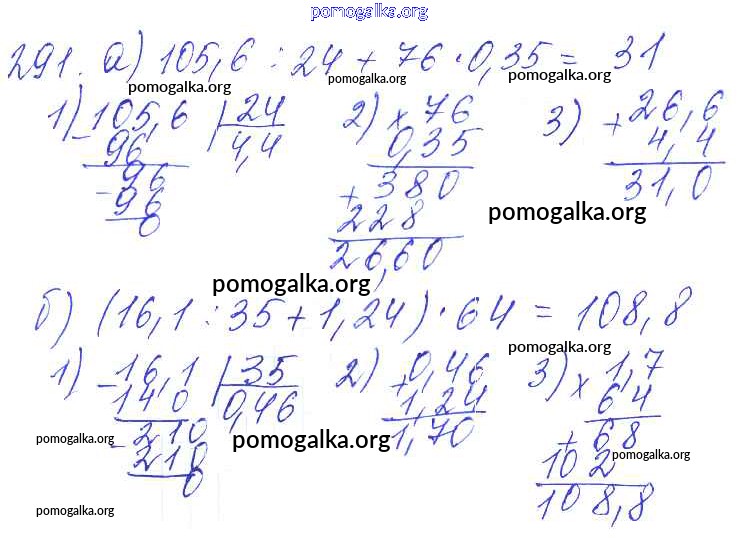 pomogalka.org
291. а) 105,6 : 24 + 76 · 0,35 = 31
pomogalka.org pomogalka.org pomogalka.org
1) - 105,6 | 24 2) × 76 3) + 26,6
96 4,4 0,35 4,4
- 96 + 380 31,0
96 228
0 26,60
pomogalka.org
pomogalka.org
б) (16,1 : 35 + 1,24) · 64 = 108,8
pomogalka.org
1) - 16,1 | 35 2) + 0,46 3) × 1,7
140 0,46 1,24 64
- 210 1,70 + 68
210 102
0 108,8
pomogalka.org pomogalka.org pomogalka.org
pomogalka.org